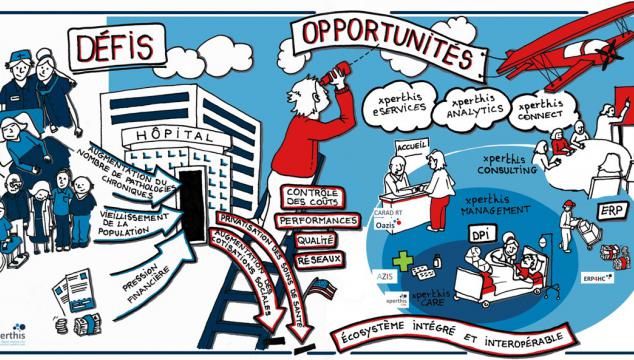 DÉFIS
OPPORTUNITÉS
HÔPITAL
AUGMENTATION DU
NOMBRE DE PATHOLOGIES
CHRONIQUES
VIEILLISSEMENT
DE LA
POPULATION
PRESSION
FINANCIÈRE
PRIVATISATION DES SOINS DE SANTÉ
AUGMENTATION DES
COTISATIONS SOCIALES
CONTRÔLE
DES COÛTS
PERFORMANCES
QUALITÉ
RÉSEAUX
xperthis
eSERVICES
xperthis
ANALYTICS
xperthis
CONNECT
ACCUEIL
xperthis
CONSULTING
CARAD RT
Oazis
xperthis
MANAGEMENT
ERP
DPi
AZIS
xperthis
xperthis
CARE
ERP4HC
ÉCOSYSTÈME INTÉGRÉ ET INTEROPÉRABLE
perthis